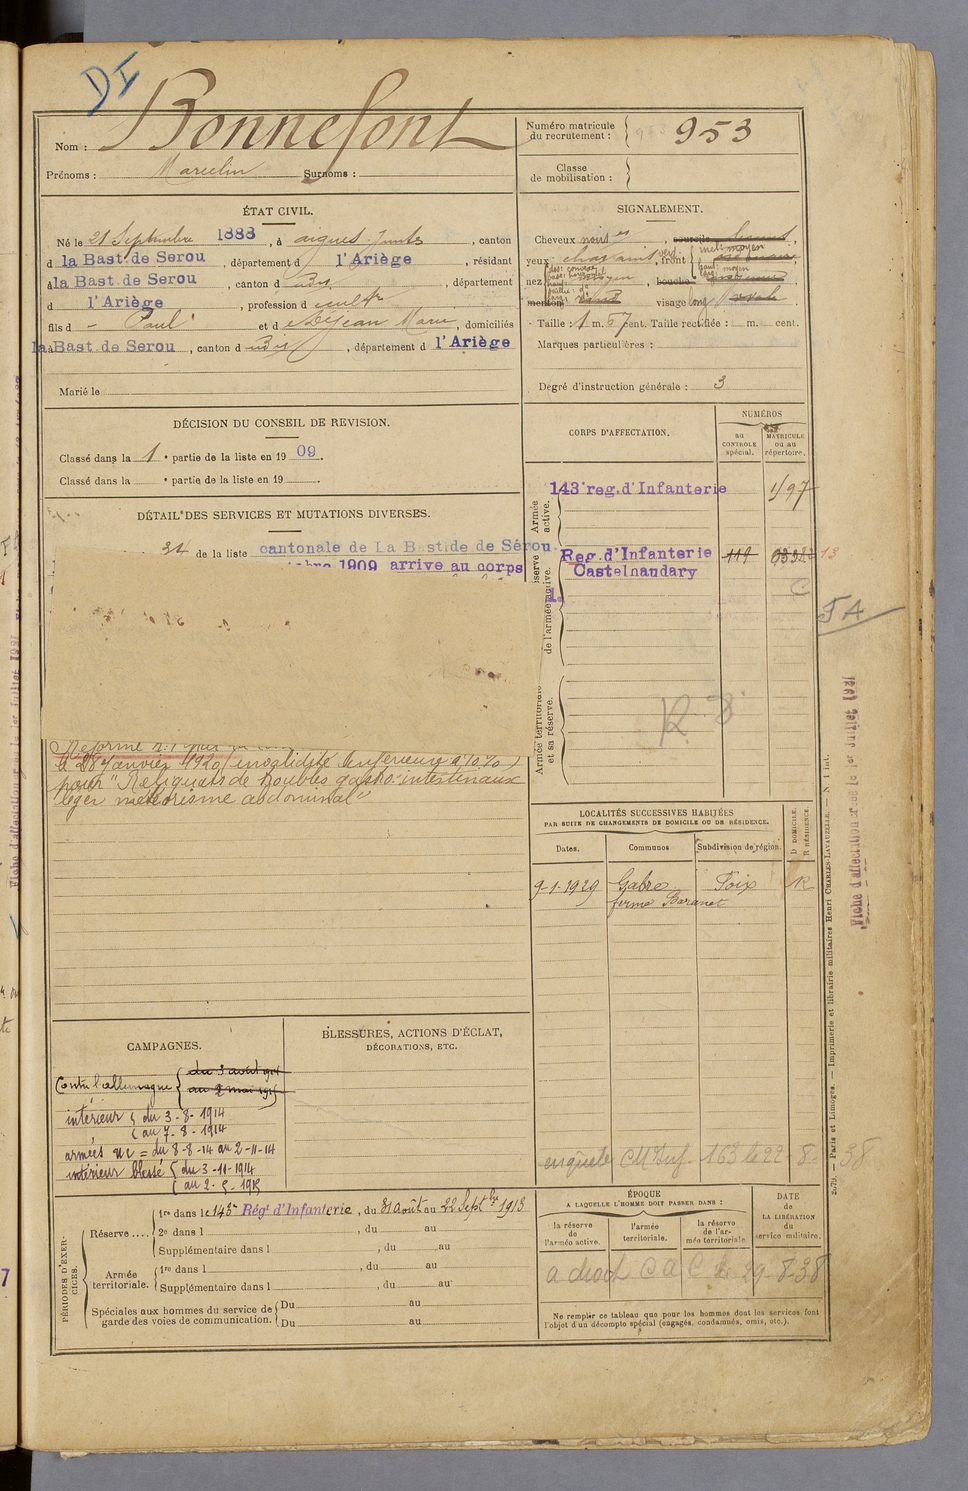 DI
Nom : Bonnefont
Prénoms : Marcelin Surnoms :
Numéro matricule du recrutement : 953
Classe de mobilisation :
ÉTAT CIVIL.
Né le 21 Septembre 1888, à aigues-Juntes, canton
d la Bast. de Serou, département d l'Ariège, résidant
à la Bast. de Serou, canton d udit, département
d l'Ariège, profession d cultr
fils d - Paul et d Dejean Marie, domiciliés
à la Bast. de Serou, canton d udit, département d l'Ariège
Marié le
SIGNALEMENT.
Cheveux noirs, sourcils
yeux chatains verts, front moyen
nez moyen, bouche
menton rond visage long ovale
Taille : 1 m. 57 cent. Taille rectifiée : m. cent.
Marques particulières :
Degré d'instruction générale : 3
DÉCISION DU CONSEIL DE REVISION.
Classé dans la 1e partie de la liste en 1909.
Classé dans la e partie de la liste en 19
DÉTAIL DES SERVICES ET MUTATIONS DIVERSES.
34 de la liste cantonale de La Bastide de Sérou
1909 arrive au corps
Réformé n: 1
le 28 Janvier 1920, invalidité inférieure à 10 %
pour "Reliquats de troubles gastro-intestinaux
léger météorisme abdominal"
CORPS D'AFFECTATION.
NUMÉROS
au CONTROLE spécial.
MATRICULE ou au répertoire.
Armée active.
143e reg. d'Infanterie 1197
Réserve de l'armée active.
Reg. d'Infanterie 119
Castelnaudary
C
Armée territoriale et sa réserve.
R 8
FA
Fiche d'affectation
LOCALITÉS SUCCESSIVES HABITÉES
PAR SUITE DE CHANGEMENTS DE DOMICILE OU DE RÉSIDENCE.
Dates. Communes Subdivision de région. D DOMICILE. R RÉSIDENCE.
9-1-1929 Gabre Foix R
ferme Baranet
CAMPAGNES.
Contre l'allemagne du 3 août 1914
au 2 mai 1915
intérieur du 3-8-1914
au 7-8-1914
armées = du 8-8-14 au 2-11-14
intérieur blessé du 3-11-1914
au 2-5-1915
BLESSURES, ACTIONS D'ÉCLAT,
DÉCORATIONS, ETC.
163 le 22-8-38
PÉRIODES D'EXERCICES.
Réserve.... 1re dans le 143e Régt d'Infanterie, du 31 août au 22 Septbre 1913
2e dans l , du au
Supplémentaire dans l , du au
Armée territoriale. 1re dans l , du au
Supplémentaire dans l , du au
Spéciales aux hommes du service de garde des voies de communication. Du au
Du au
ÉPOQUE
A LAQUELLE L'HOMME DOIT PASSER DANS :
la réserve de l'armée active.
l'armée territoriale.
la réserve de l'armée territoriale
DATE de LA LIBÉRATION du service militaire.
a droit C a C le 29-8-38
Ne remplir ce tableau que pour les hommes dont les services font
l'objet d'un décompte spécial (engagés, condamnés, omis, etc.).
Paris et Limoges. — Imprimerie et librairie militaires Henri CHARLES-LAVAUZELLE.